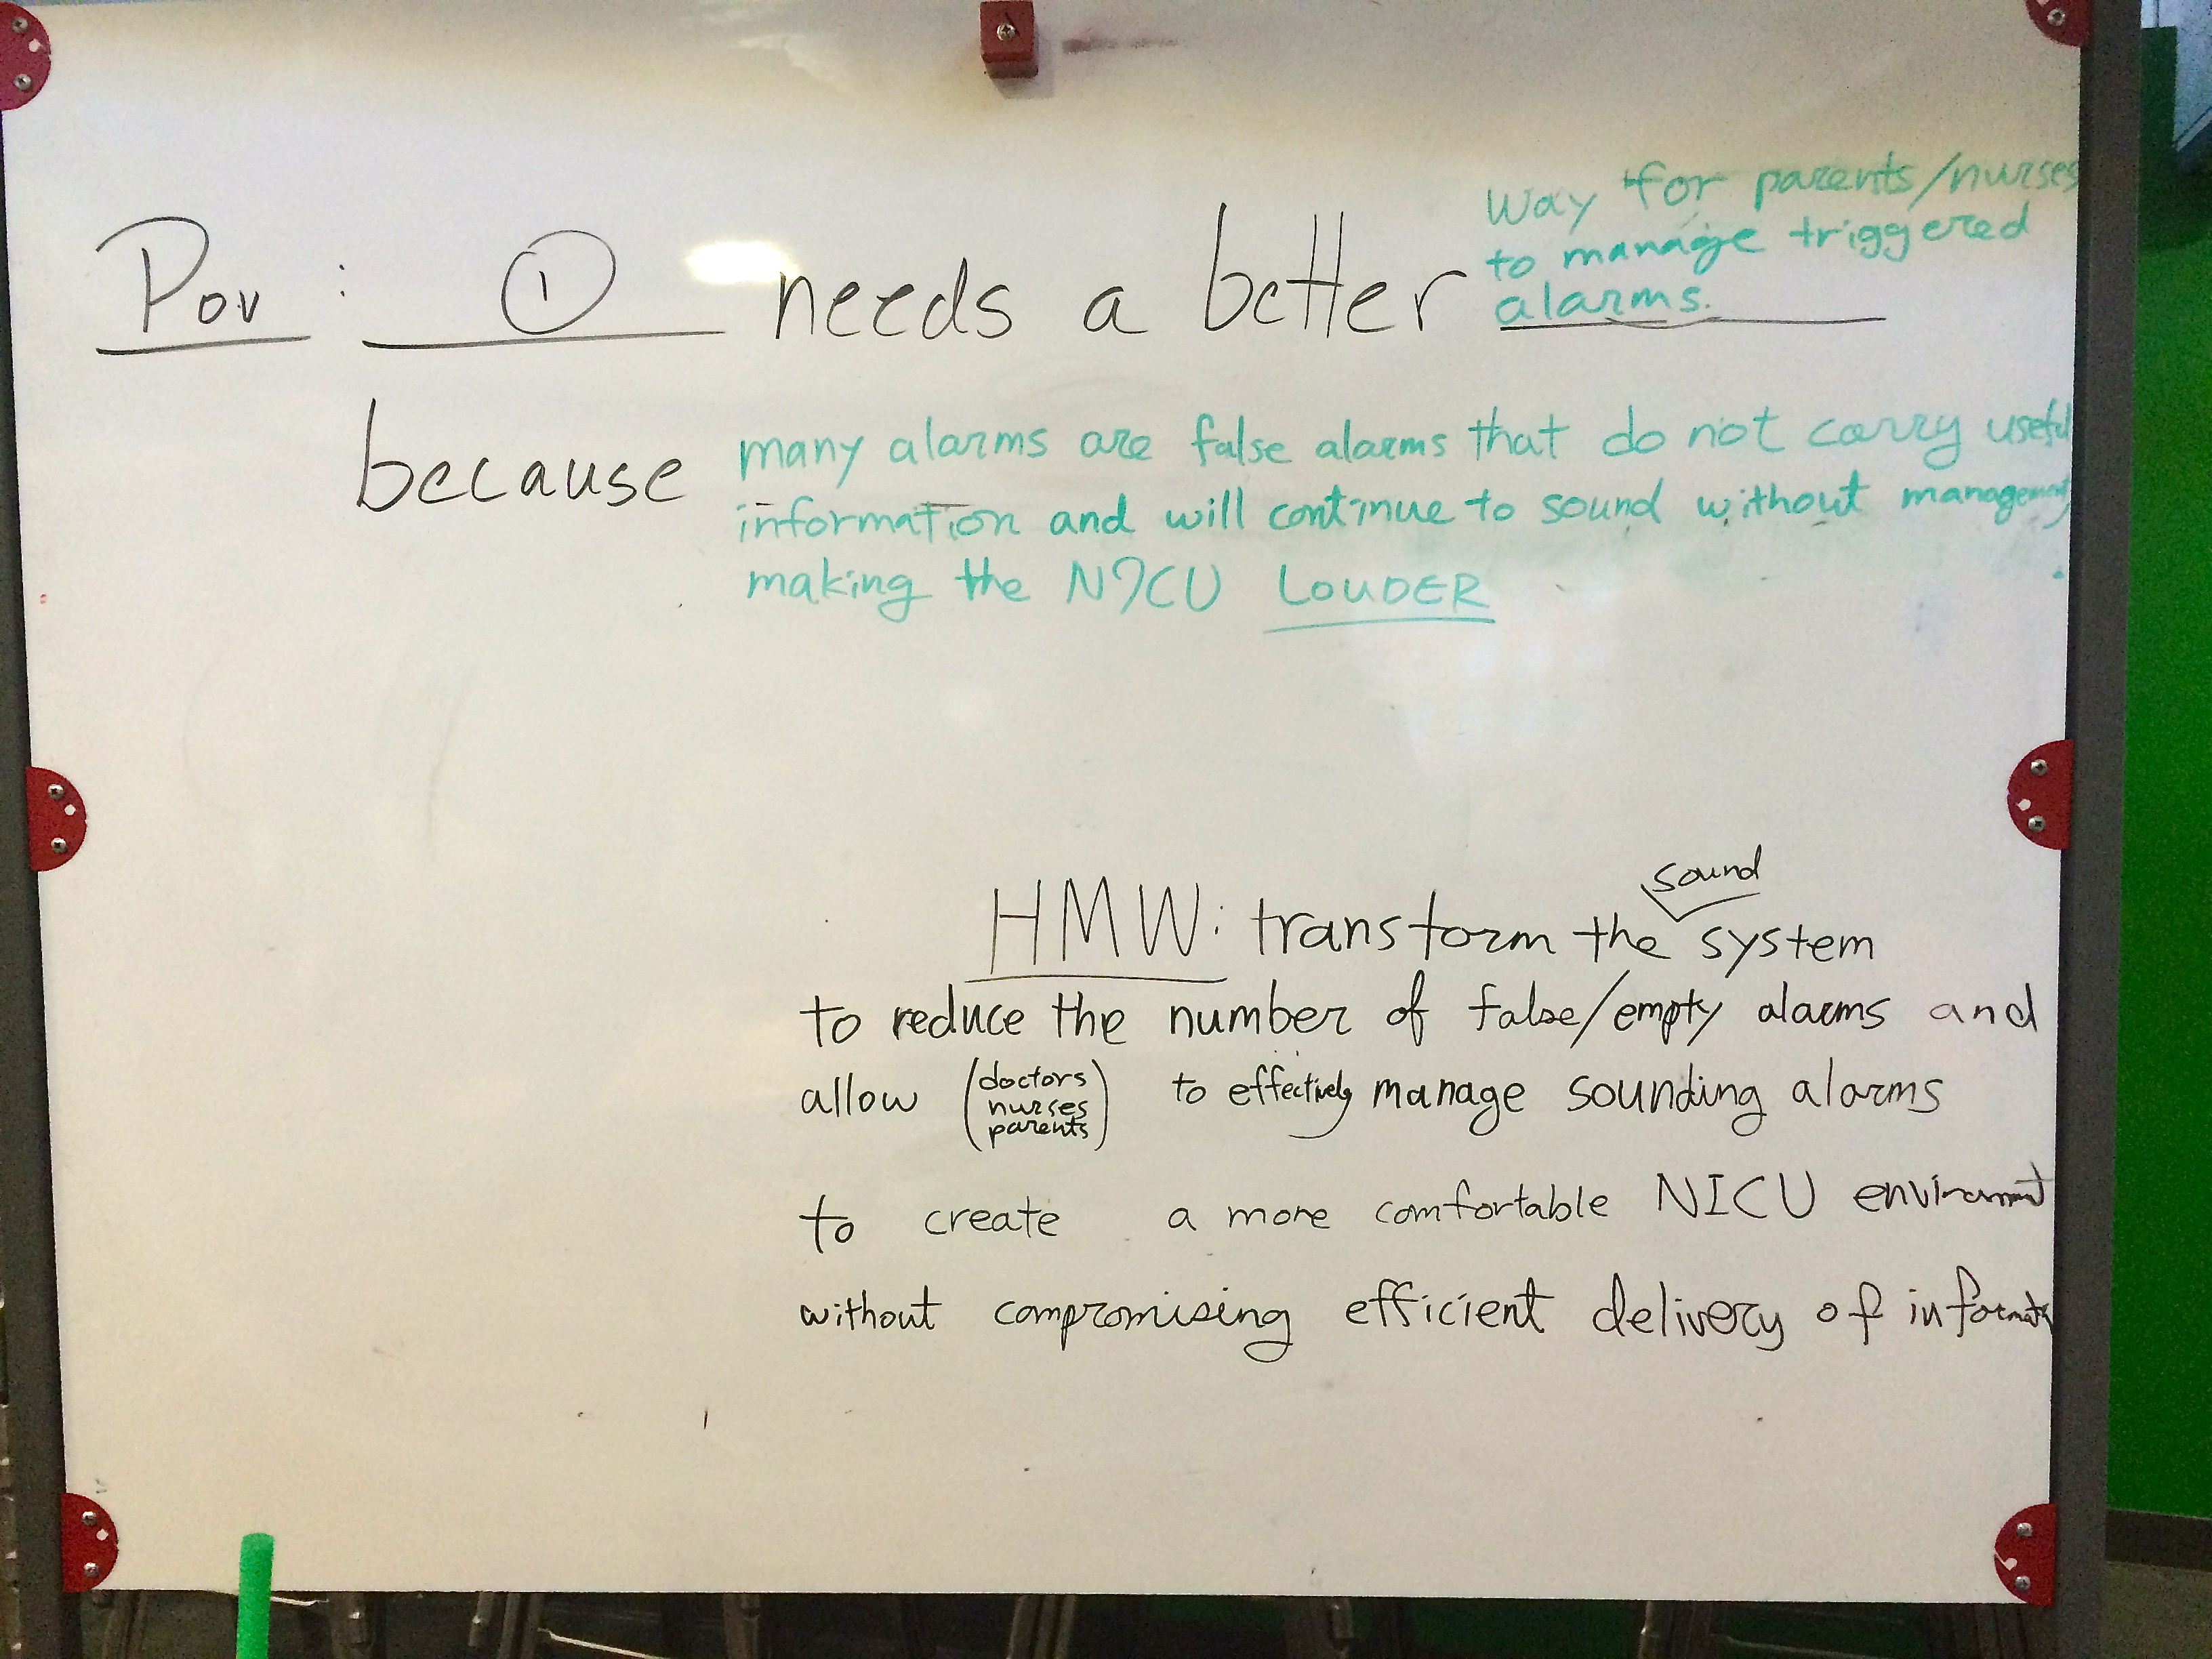 Pov : ① needs a better way for parents/nurses
to manage triggered
alarms.
because many alarms are false alarms that do not carry useful
information and will continue to sound without management
making the NICU LOUDER
HMW: transform the sound system
to reduce the number of false/empty alarms and
allow (doctors nurses parents) to effectively manage sounding alarms
to create a more comfortable NICU environment
without compromising efficient delivery of